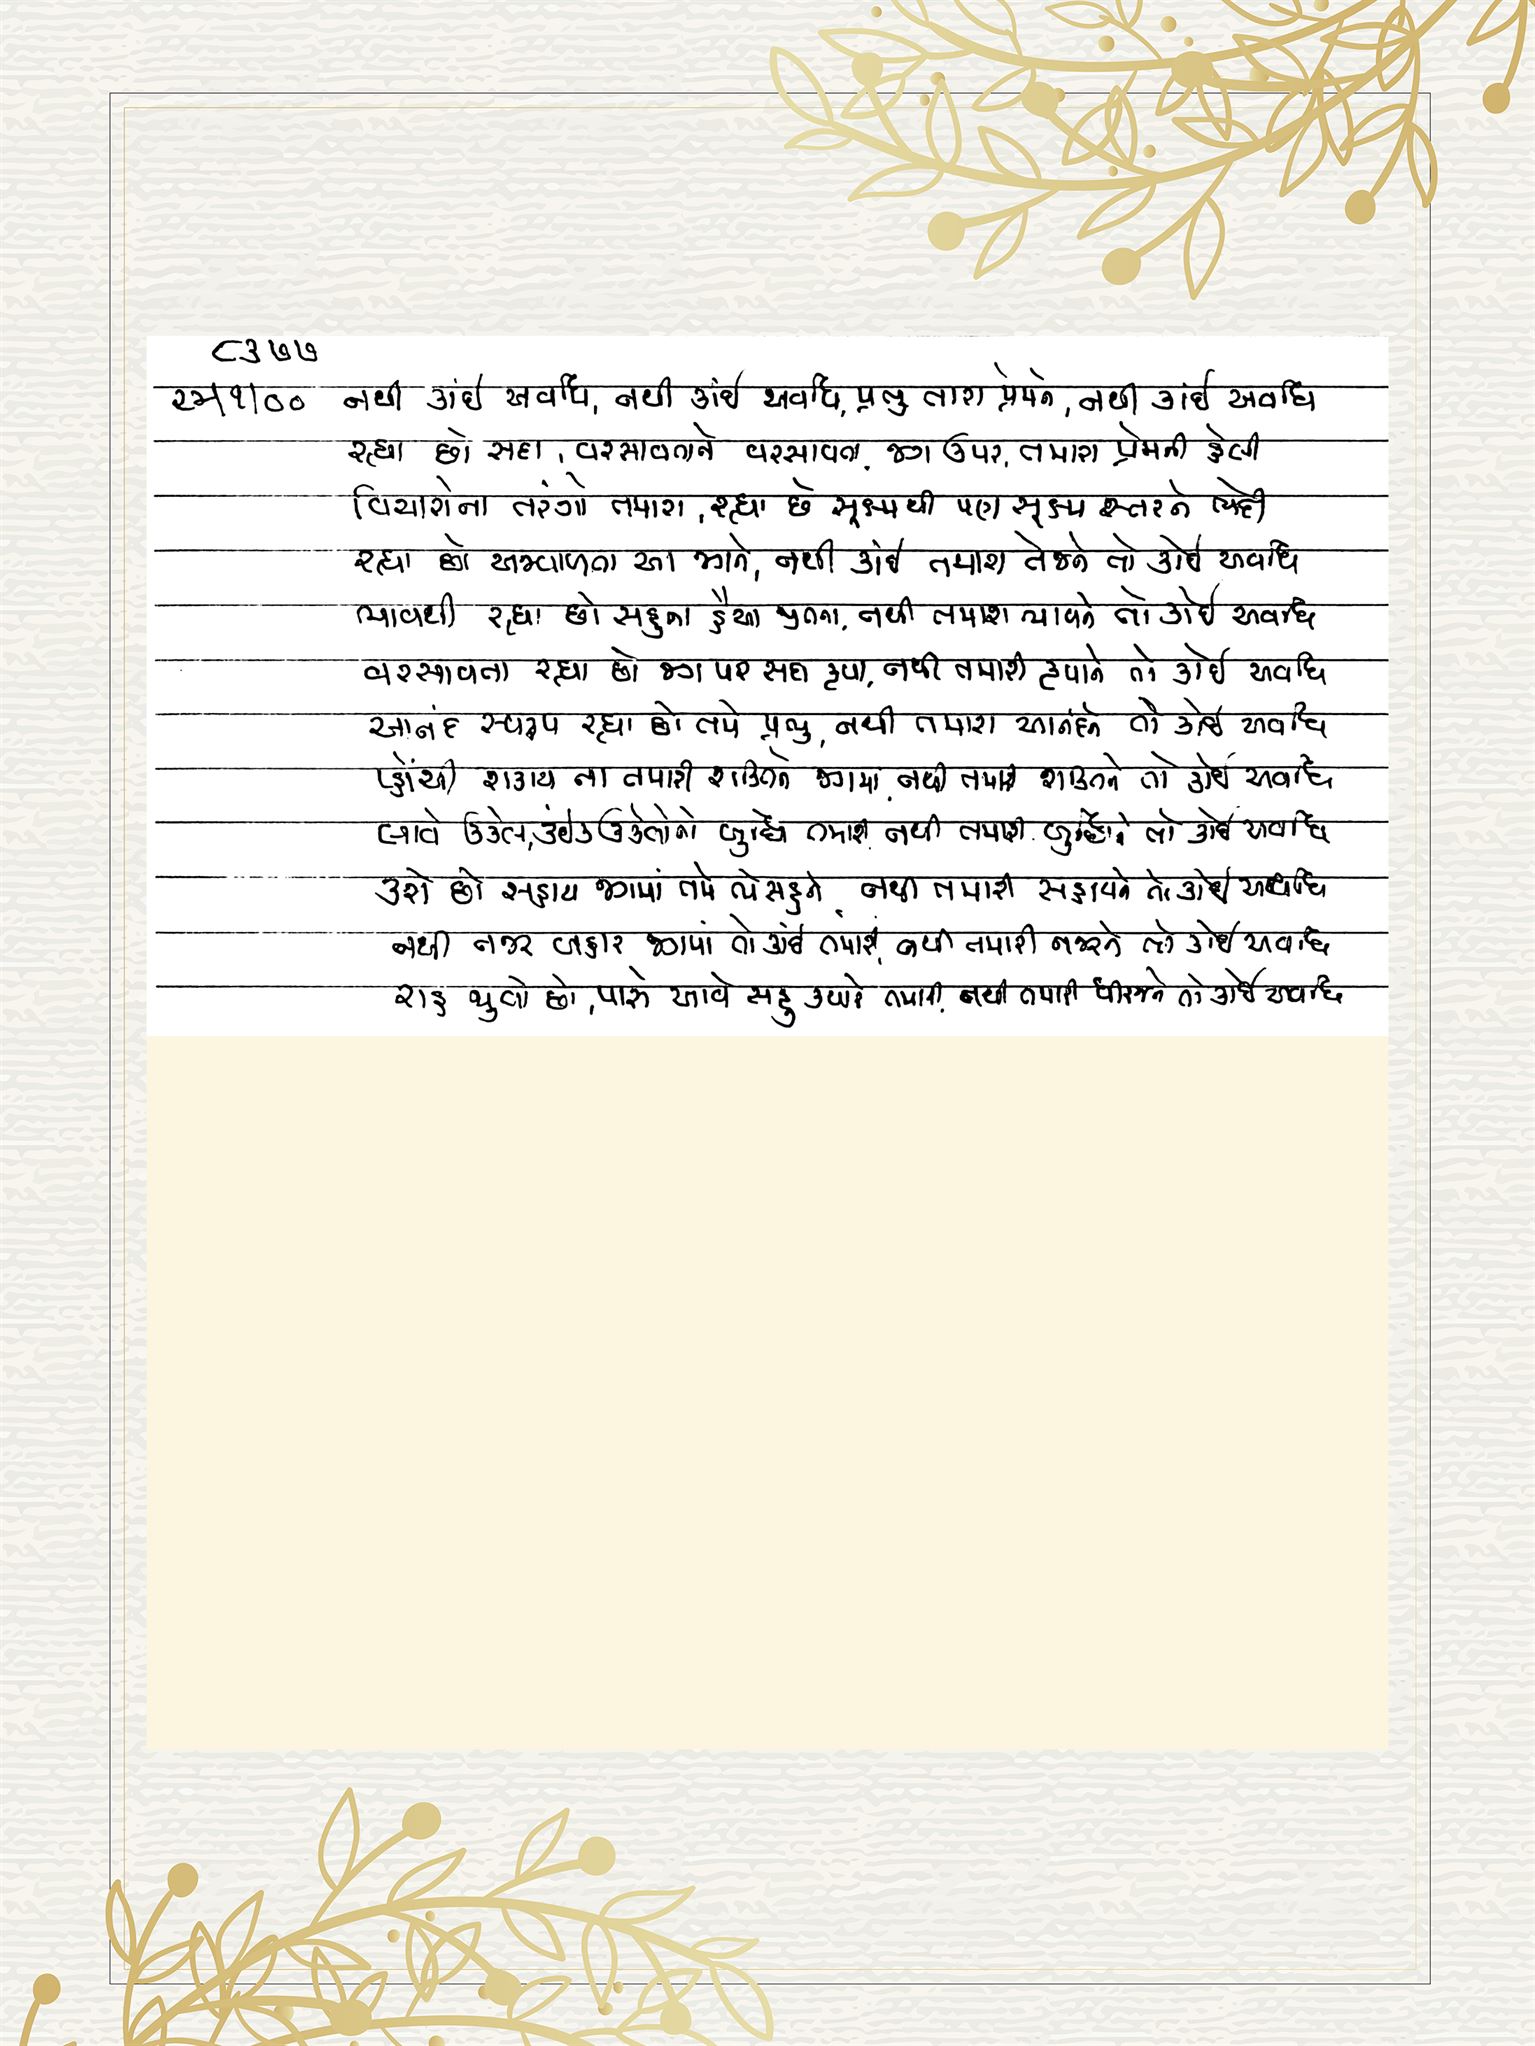 ૮૩૭૭
૨૮/૧/૦૦ નથી કાંઈ અવધિ, નથી કાંઈ અવધિ, પ્રભુ તારા પ્રેમને, નથી કાંઈ અવધિ
રહ્યા છો સદા, વરસાવતાને વરસાવતા, જગ ઉપર, તમારા પ્રેમની હેલી
વિચારોના તરંગો તમારા, રહ્યા છે સૂક્ષ્મથી પણ સૂક્ષ્મ સ્તરને ભેદી
રહ્યા છો અજવાળતા આ જગને, નથી કાંઈ તમારા તેજને તો કોઈ અવધિ
ભાવથી રહ્યા છો સહુના હૈયા જીતતા, નથી તમારા ભાવને તો કોઈ અવધિ
વરસાવતા રહ્યા છો જગ પર સદા કૃપા, નથી તમારી કૃપાને તો કોઈ અવધિ
આનંદ સ્વરૂપ રહ્યા છો તમે પ્રભુ, નથી તમારા આનંદને તો કોઈ અવધિ
પ્હોંચી શકાય ના તમારી શક્તિને જગમાં, નથી તમારી શક્તિને તો કોઈ અવધિ
લાવે ઉકેલ, કંઈક ઉકેલોનો બુદ્ધિ તમારી, નથી તમારી બુદ્ધિને તો કોઈ અવધિ
કરો છો સહાય જગમાં તમે તો સહુને, નથી તમારી સહાયને તો કોઈ અવધિ
નથી નજર બહાર જગમાં તો કાંઈ તમારી, નથી તમારી નજરને તો કોઈ અવધિ
રાહ જુવો છો, પાસે આવે સહુ ક્યારે તમારી, નથી તમારી ધીરજને તો કોઈ અવધિ